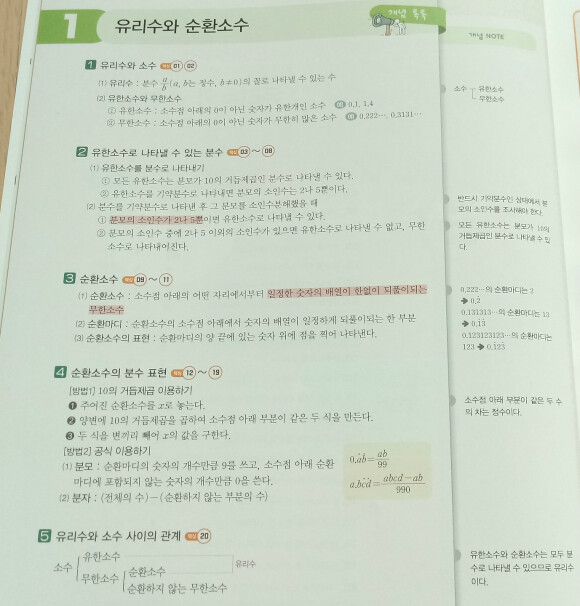 1 유리수와 순환소수
개념 톡톡
1 유리수와 소수 핵심 01 02
(1) 유리수 : 분수 a/b (a, b는 정수, b≠0)의 꼴로 나타낼 수 있는 수
(2) 유한소수와 무한소수
① 유한소수 : 소수점 아래의 0이 아닌 숫자가 유한개인 소수 예 0.1, 1.4
② 무한소수 : 소수점 아래의 0이 아닌 숫자가 무한히 많은 소수 예 0.222⋯, 0.3131⋯
2 유한소수로 나타낼 수 있는 분수 핵심 03 ~ 08
(1) 유한소수를 분수로 나타내기
① 모든 유한소수는 분모가 10의 거듭제곱인 분수로 나타낼 수 있다.
② 유한소수를 기약분수로 나타내면 분모의 소인수는 2나 5뿐이다.
(2) 분수를 기약분수로 나타낸 후 그 분모를 소인수분해했을 때
① 분모의 소인수가 2나 5뿐이면 유한소수로 나타낼 수 있다.
② 분모의 소인수 중에 2나 5 이외의 소인수가 있으면 유한소수로 나타낼 수 없고, 무한
소수로 나타내어진다.
3 순환소수 핵심 09 ~ 11
(1) 순환소수 : 소수점 아래의 어떤 자리에서부터 일정한 숫자의 배열이 한없이 되풀이되는
무한소수
(2) 순환마디 : 순환소수의 소수점 아래에서 숫자의 배열이 일정하게 되풀이되는 한 부분
(3) 순환소수의 표현 : 순환마디의 양 끝에 있는 숫자 위에 점을 찍어 나타낸다.
4 순환소수의 분수 표현 핵심 12 ~ 19
[방법1] 10의 거듭제곱 이용하기
❶ 주어진 순환소수를 x로 놓는다.
❷ 양변에 10의 거듭제곱을 곱하여 소수점 아래 부분이 같은 두 식을 만든다.
❸ 두 식을 변끼리 빼어 x의 값을 구한다.
[방법2] 공식 이용하기
(1) 분모 : 순환마디의 숫자의 개수만큼 9를 쓰고, 소수점 아래 순환
마디에 포함되지 않는 숫자의 개수만큼 0을 쓴다.
(2) 분자 : (전체의 수)-(순환하지 않는 부분의 수)
0.ȧḃ=ab/99
a.bċḋ=abcd-ab/990
5 유리수와 소수 사이의 관계 핵심 20
소수
유한소수
무한소수
순환소수
순환하지 않는 무한소수
유리수
개념 NOTE
소수
유한소수
무한소수
반드시 기약분수인 상태에서 분
모의 소인수를 조사해야 한다.
모든 유한소수는 분모가 10의
거듭제곱인 분수로 나타낼 수 있
다.
0.222⋯의 순환마디는 2
➔ 0.2̇
0.131313⋯의 순환마디는 13
➔ 0.1̇3̇
0.123123123⋯의 순환마디는
123 ➔ 0.1̇23̇
소수점 아래 부분이 같은 두 수
의 차는 정수이다.
유한소수와 순환소수는 모두 분
수로 나타낼 수 있으므로 유리수
이다.